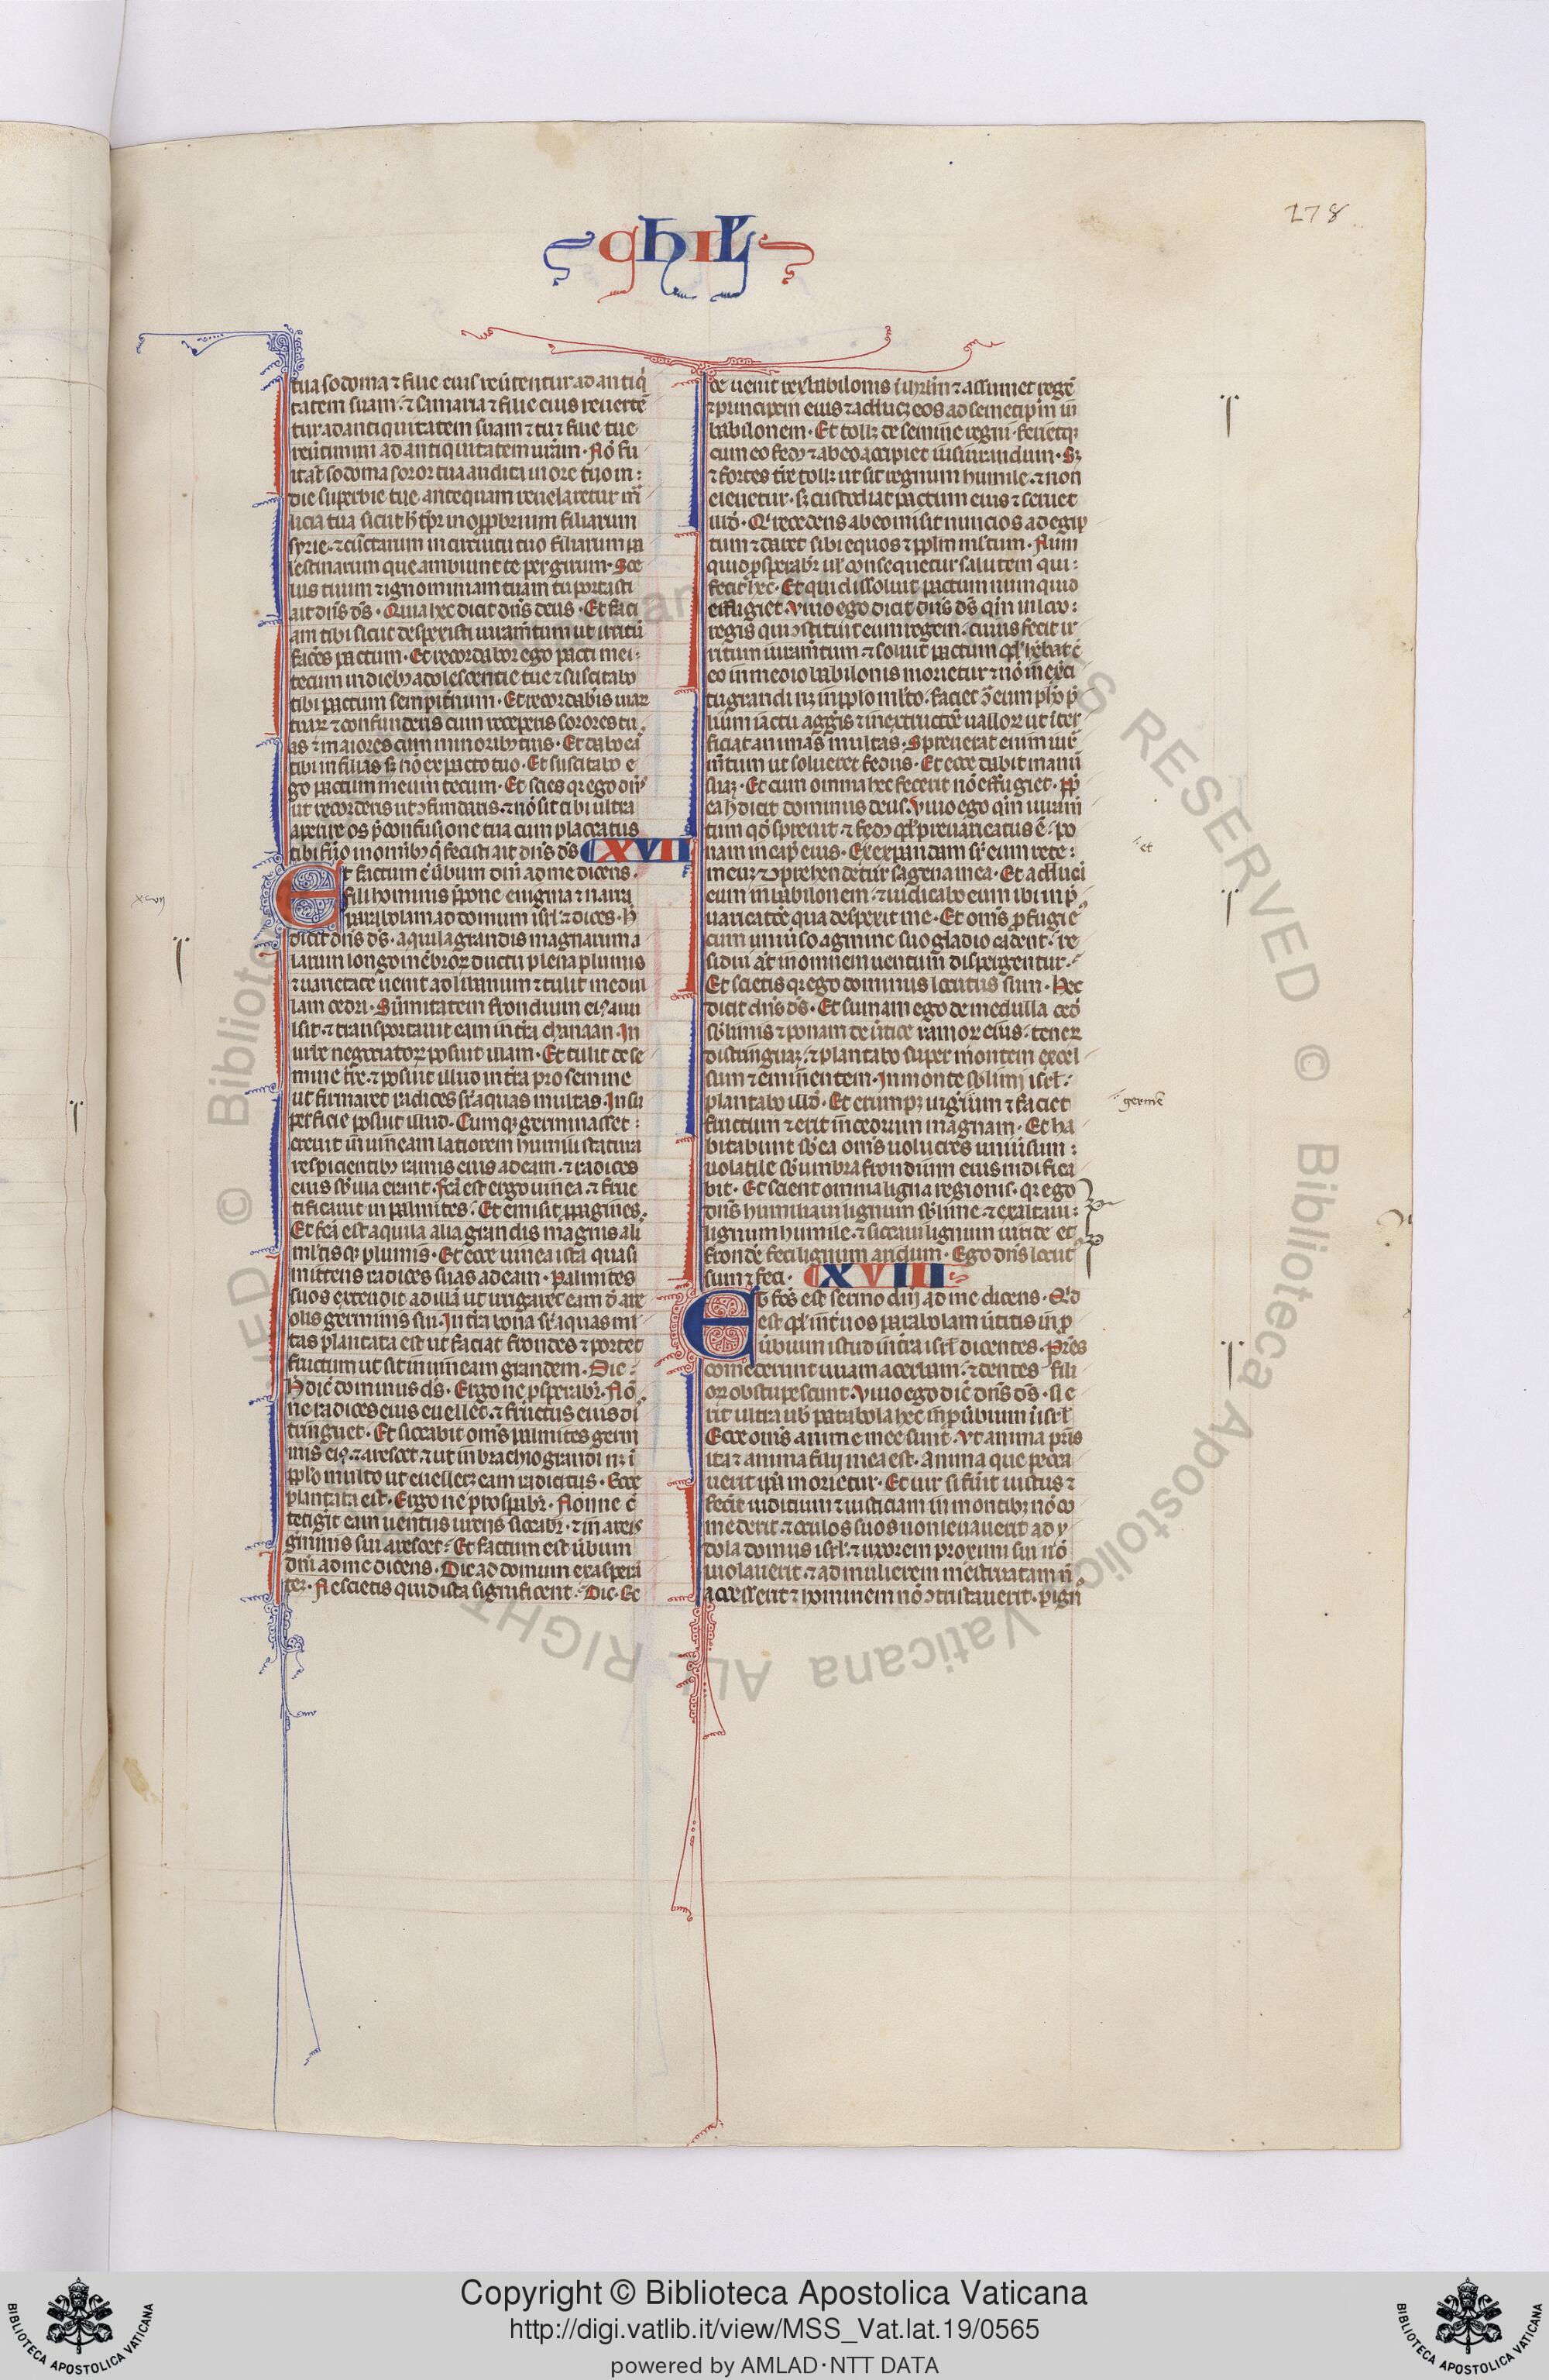 278
tua sodoma ⁊ filie eius reuertentur ad antiq̇
tatem suam. ⁊ samaria ⁊ filie eius reuertē
tur ad antiquitatem suam ⁊ tu ⁊ filie tue
reūtimini ad antiquitatem uram. Nō fu
it aūt sodoma soror tua audita in ore tuo in
die superbie tue antequam reuelaretur m̄
licia tua sicut h̄ tp̄r in opp̄brium filiarum
syrie. ⁊ cūctarum in circuitu tuo filiarum pa
lestinarum que ambiunt te per girum. Sce
lus tuum ⁊ ignominiam tuam tu portasti
ait dn̄s ds̄. Quia hec dicit dn̄s deus. Et faci
am tibi sicut despexisti iuram̄tum ut irritū
faceres pactum. Et recordabor ego pacti mei
tecum in dieb; adolescentie tue ⁊ suscitabo
tibi pactum sempit̄num. Et recordab̄is uiar
tuar ⁊ confunderis cum receperis sorores tu
as ⁊ maiores cum minorib; tuis. Et dabo eas
tibi in filias s; nō ex pacto tuo. Et suscitabo e
go pactum meum tecum. Et scies q; ego dn̄s
ut recorderis ut ɔfundaris. ⁊ nō sit tibi ultra
aperire os p̄ confusione tua cum placatus
tibi fuo in omnib; q̄ fecisti ait dn̄s ds̄ XVII
Et factum ē ūbum dn̄i ad me dicens.
Fili hominis p̄pone enigma ⁊ narra
parabolam ad domum isrl̄ ⁊ dices. h̄
dicit dn̄s ds̄. aquila grandis magnarum a
larum longo mēbror ductu plena plumis
⁊ uarietate uenit ad libanum ⁊ tulit medul
lam cedri. Sūmitatem frondium ei9 auul
sit. ⁊ transportauit eam in tr̄a chanaan. In
urbe negociator posuit illam. Et tulit de se
mine tr̄e. ⁊ posuit illud in tr̄a pro semine
ut firmaret radices sr̄ aquas multas. In su
perficie posuit illud. Cumq; germinasset
creuit in uineam latiorem humili statura
respicientib; ramis eius ad eam. ⁊ radices
eius sb̄ illa erant. Fc̄a est ergo uinea. ⁊ fruc
tificauit in palmites. Et emisit p̄pagines.
Et fc̄a est aquila alia grandis magnis ali
ml̄tisq; plumis. Et ecce uinea ista quasi
mittens radices suas ad eam. Palmites
suos extendit ad illā ut irrigaret eam d̄ are
olis germinis sui. In tr̄a bona sr̄ aquas ml̄
tas plantata est ut faciat frondes ⁊ portet
fructum ut sit in uineam grandem. Dic
h̄ dic̄ dominus ds̄. Ergo ne p̄sperabr̄. Nō
ne radices eius euellet. ⁊ fructus eius di
stringuet. Et siccabit om̄s palmites germi
nis ei9. ⁊ arescet. ⁊ ut in brachio grandi n; i
pp̄lo multo ut euelleret; eam radicitus. Ecce
plantata est. Ergo ne prosp̄abr̄. Nonne c̄
tetig̈it eam uentus urens siccabr̄. ⁊ in areis
g̈minis sui arescet. Et factum est ūbum
dn̄i ad me dicens. Dic ad domum exasperā
tē. Nescietis quid ista significent. Dic. Ec
ce uenit rex babilonis ī ihrlm̄ ⁊ assumet regē
⁊ principem eius ⁊ adduc; eos ad semetip̄m in
babilonem. Et toll; de semine regni. ferietq;
cum eo fed; ⁊ ab eo accipiet iusiurandum. S;
⁊ fortes tr̄e toll; ut sit regnum humile. ⁊ non
eleuetur. s; custodiat pactum eius ⁊ seruet
illd̄. Qi recedens ab eo misit nuncios ad egip
tum ⁊ daret sibi equos ⁊ pp̄lm ml̄tum. Num
quid p̄sperabr̄ ul̄ consequetur salutem qui
fecit hec. Et qui dissoluit pactum nunquid
effugiet. Viuo ego dicit dn̄s ds̄ qm̄ in loco
regis qui ɔstituit eum regem. cuius fecit ir
ritum iuram̄tum ⁊ soluit pactum qd̄ h̄ebat c̄
eo in medio babilonis morietur. ⁊ nō in exci
tu grandi n; in pp̄lo ml̄to. faciet ɔ̄ eum pl̄; p̄
lium iactu agḡis ⁊ in extructōe uallor ut īter
ficiat animas multas. Spreuerat enim iur̄
m̄tum ut solueret fedus. Et ecce dabit manū
suā;. Et cum omnia hec fecerit nō effugiet. Pp̄
ea h̄ dicit dominus deus. Viuo ego qm̄ iuram̄
tum qd̄ spreuit. ⁊ fed; qd̄ preuaricatus ē. po
nam in cap̄ eius. Et expandam sr̄ eum rete
meu; ⁊ ɔprehendetur sagena mea. Et adduci
eum in babilonem. ⁊ iudicabo eum ibi in p̄
uaricatōe qua despexit me. Et om̄s p̄fugi e
cum uniūso agmine suo gladio cadent. re
sidui aūt in omnem uentum dispergentur.
Et scietis q; ego dominus locutus sum. Hec
dicit dn̄s ds̄. Et sumam ego de medulla ced̄
sb̄limis ⁊ ponam de ūtice ramor eius. tener
distringua;. ⁊ plantabo super montem excel
sum ⁊ eminentem. In monte sb̄limi isrl̄.
plantabo illd̄. Et erump; in germē ⁊ faciet
fructum ⁊ erit in cedrum magnam. Et ha
bitabunt sb̄ ea om̄s uolucres uniūsum
uolatile sb̄ umbra frondium eius nidifica
bit. Et scient omnia ligna regionis. q; ego
dn̄s humiliaui lignum sb̄lime. ⁊ exaltaui
lignum humile. ⁊ siccaui lignum uiride et
fronde feci lignum aridum. Ego dn̄s locut9
sum ⁊ feci. XVIII
Et fcs̄ est sermo dn̄i ad me dicens. Qd̄
est qd̄ int̄ uos parabolam ūtitis in p̄
ūbium istud in tr̄a isrl̄ dicentes. Pr̄es
comederunt uuam acerbam. ⁊ dentes fili
or obstupescunt. Viuo ego dic̄ dn̄s ds̄. si e
rit ultra uob̄ parabola hec in p̄ūbium ī isrl̄
Ecce om̄s anime mee sunt. Vt anima pr̄is
ita ⁊ anima filij mea est. Anima que pecca
uerit ip̄a morietur. Et uir si fūit iustus ⁊
fec̄it iuditium ⁊ iusticiam ī montib; nō co
mederit. ⁊ oculos suos non leuauerit ad y
dola domus isrl̄. ⁊ uxorem proximi sui nō
uiolauerit. ⁊ ad mulierem menstruatam n̄
accesserit ⁊ hominem nō ɔtristauerit. pign̄
xvij
et
germē
Copyright © Biblioteca Apostolica Vaticana
http://digi.vatlib.it/view/MSS_Vat.lat.19/0565
powered by AMLAD·NTT DATA
BIBLIOTECA APOSTOLICA VATICANA
BIBLIOTECA APOSTOLICA VATICANA